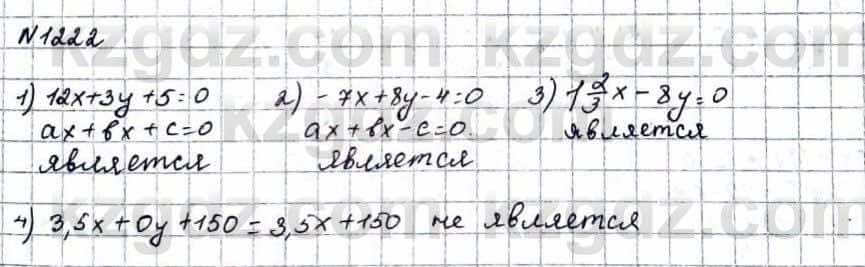 N1222
1) 12x+3y+5=0 2) -7x+8y-4=0 3) 1 2/3 x - 8y=0
ax+bx+c=0 ax+bx-c=0. является
является является
4) 3,5x+0y+150=3,5x+150 не является
kzgdz.com